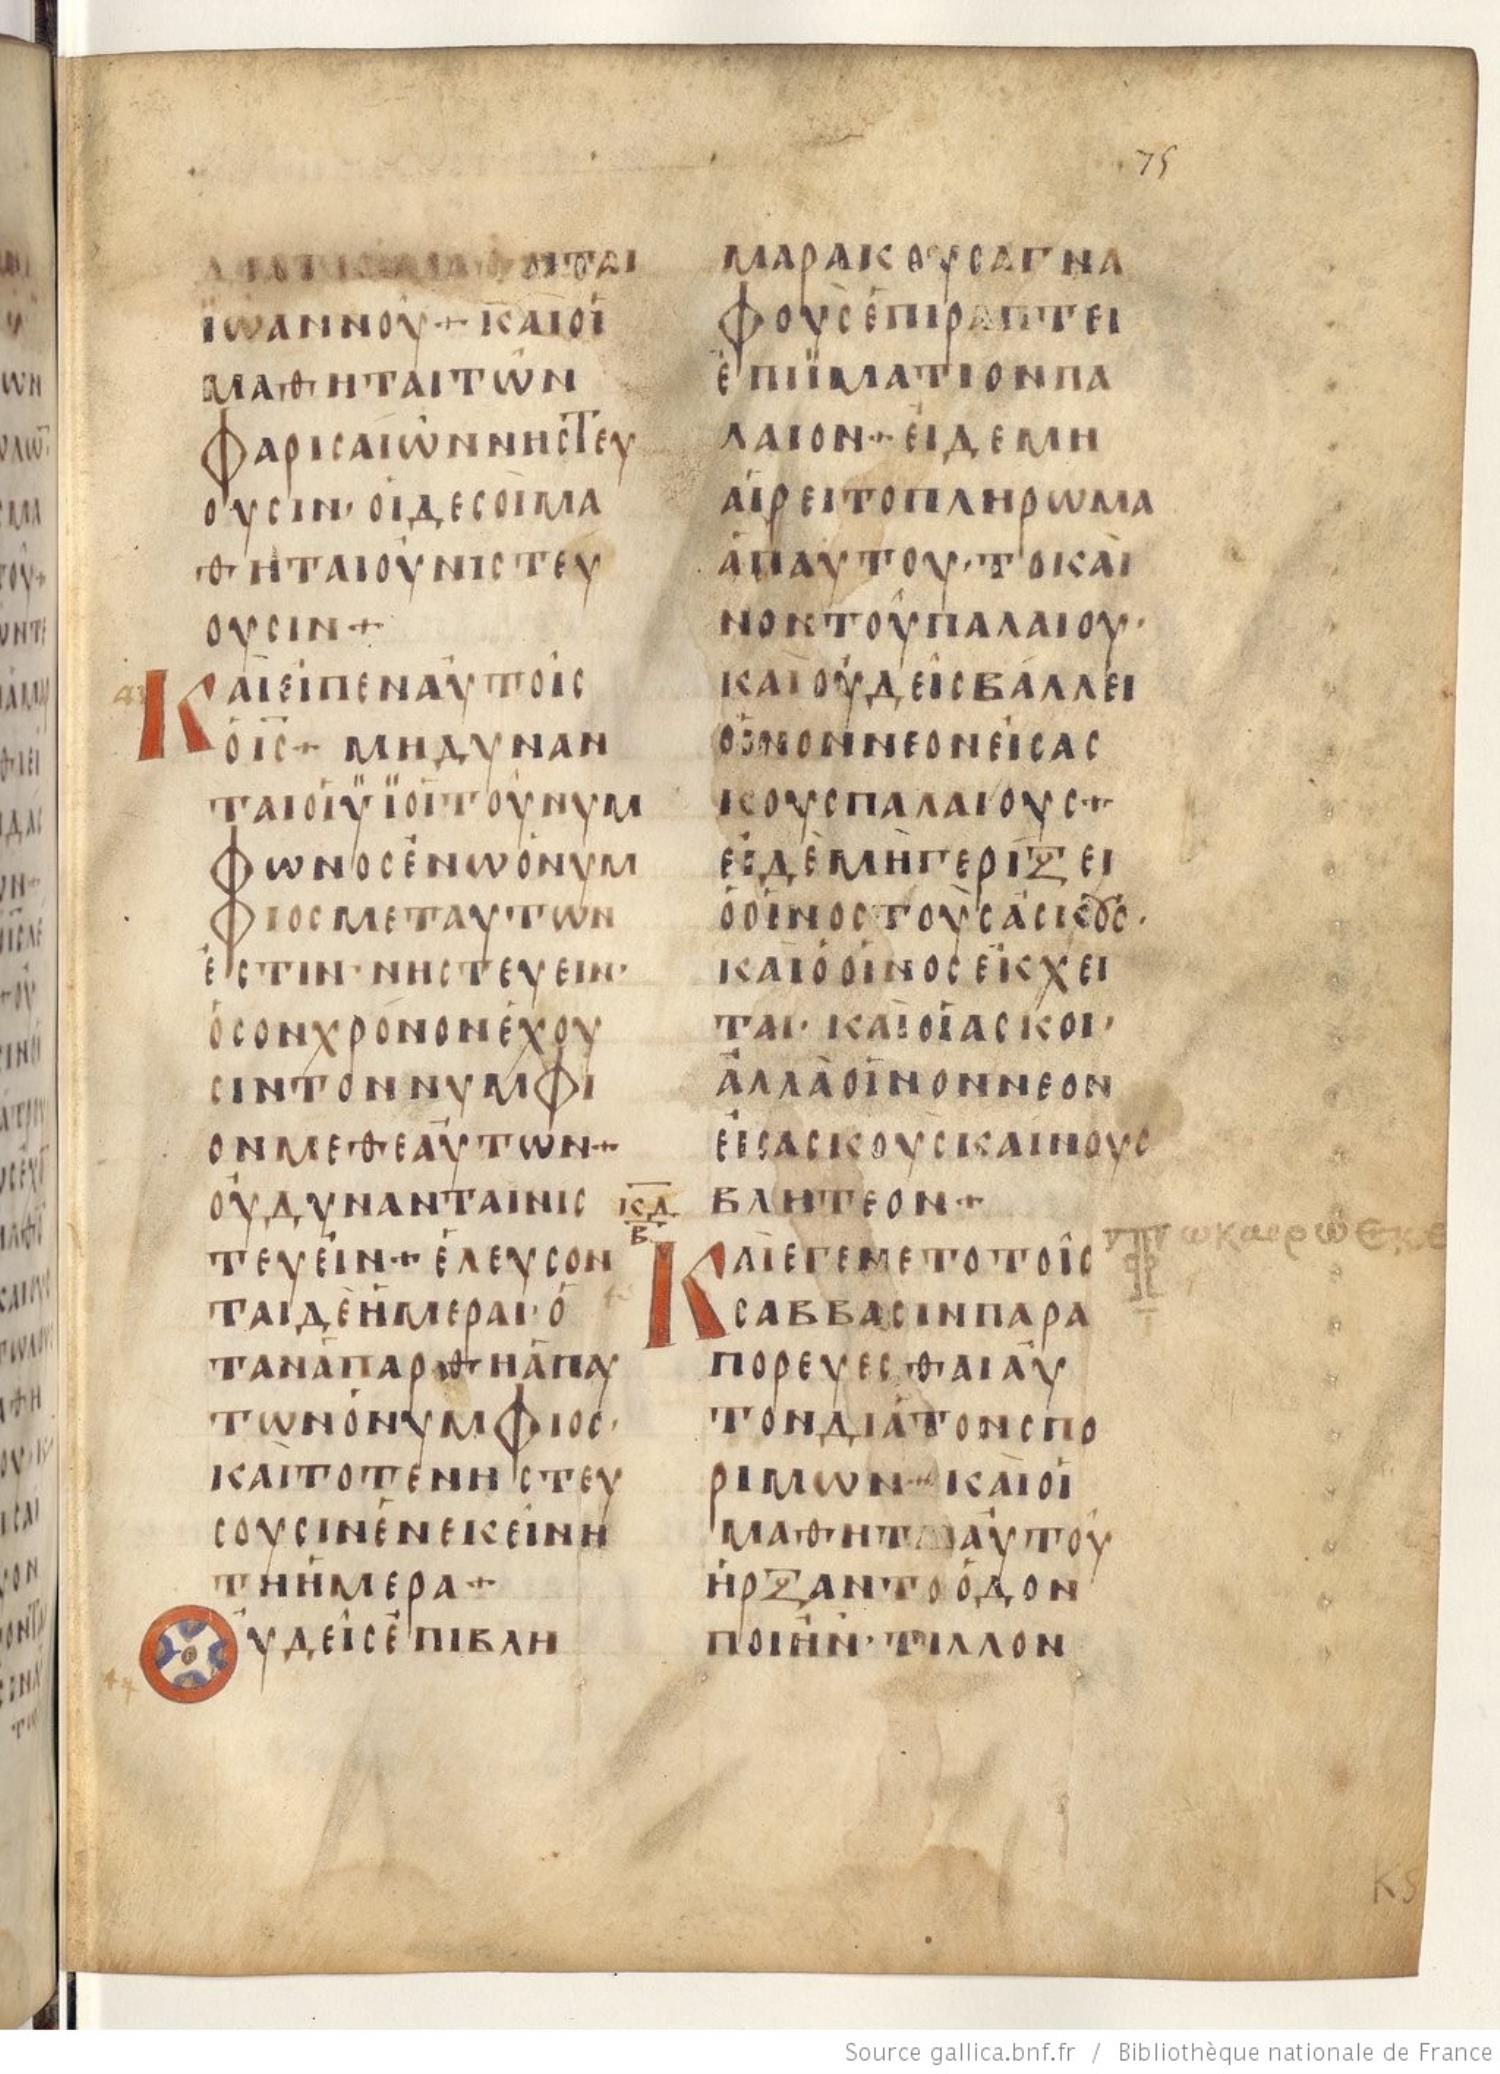 75
ΜΑΘΗΤΑΙ
ΪΩΑΝΝΟΥ+ΚΑΙΟΙ
ΜΑΘΗΤΑΙΤΩΝ
ΦΑΡΙСΑΙΩΝΝΗСΤΕΥ
ΟΥСΙΝ·ΟΙΔΕСΟΙΜΑ
ΘΗΤΑΙΟΥΝΙСΤΕΥ
ΟΥСΙΝ+
ΚΑΙΕΙΠΕΝΑΥΤΟΙС
ΟΙ̅С̅+ ΜΗΔΥΝΑΝ
ΤΑΙΟΙΫΪΟΙΤΟΥΝΥΜ
ΦΩΝΟСΕΝΩΟΝΥΜ
ΦΙΟСΜΕΤΑΥΤΩΝ
ΕСΤΙΝ·ΝΗСΤΕΥΕΙΝ·
ΟСΟΝΧΡΟΝΟΝΕΧΟΥ
СΙΝΤΟΝΝΥΜΦΙ
ΟΝΜΕΘΕΑΥΤΩΝ+
ΟΥΔΥΝΑΝΤΑΙΝΙС
ΤΕΥΕΙΝ+ΕΛΕΥСΟΝ
ΤΑΙΔΕΗΜΕΡΑΙ·Ο
ΤΑΝΑΠΑΡΘΗΑΠΑΥ
ΤΩΝΟΝΥΜΦΙΟС·
ΚΑΙΤΟΤΕΝΗСΤΕΥ
СΟΥСΙΝΕΝΕΚΕΙΝΗ
ΤΗΗΜΕΡΑ+
ΟΥΔΕΙСΕΠΙΒΛΗ
ΜΑΡΑΚΟΥСΑΓΝΑ
ΦΟΥСΕΠΙΡΑΠΤΕΙ
ΕΠΙΪΜΑΤΙΟΝΠΑ
ΛΑΙΟΝ+ΕΙΔΕΜΗ
ΑΙΡΕΙΤΟΠΛΗΡΩΜΑ
ΑΠΑΥΤΟΥ·ΤΟΚΑΙ
ΝΟΝΤΟΥΠΑΛΑΙΟΥ·
ΚΑΙΟΥΔΕΙСΒΑΛΛΕΙ
ΟΙΝΟΝΝΕΟΝΕΙСΑС
ΚΟΥСΠΑΛΑΙΟΥС+
ΕΙΔΕΜΗΓΕΡΙΞΕΙ
ΟΟΙΝΟСΤΟΥСΑСΚΟΥС·
ΚΑΙΟΟΙΝΟСΕΚΧΕΙ
ΤΑΙ· ΚΑΙΟΙΑСΚΟΙ·
ΑΛΛΑΟΙΝΟΝΝΕΟΝ
ΕΙСΑСΚΟΥСΚΑΙΝΟΥС
ΒΛΗΤΕΟΝ+
Κ̅Δ̅
Β
ΚΑΙΕΓΕΝΕΤΟΤΟΙС
СΑΒΒΑСΙΝΠΑΡΑ
ΠΟΡΕΥΕСΘΑΙΑΥ
ΤΟΝΔΙΑΤΟΝСΠΟ
ΡΙΜΩΝ+ΚΑΙΟΙ
ΜΑΘΗΤΑΙΑΥΤΟΥ
ΗΡΞΑΝΤΟΟΔΟΝ
ΠΟΙΗΝ·ΤΙΛΛΟΝ
Source gallica.bnf.fr / Bibliothèque nationale de France